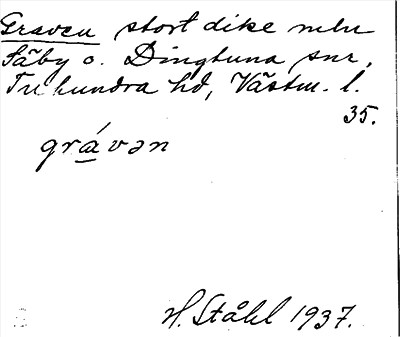 Graven stort dike mln
Säby o. Dingtuna snr,
Tuhundra hd, Västm. l.
35.
grávən
H. Ståhl 1937.